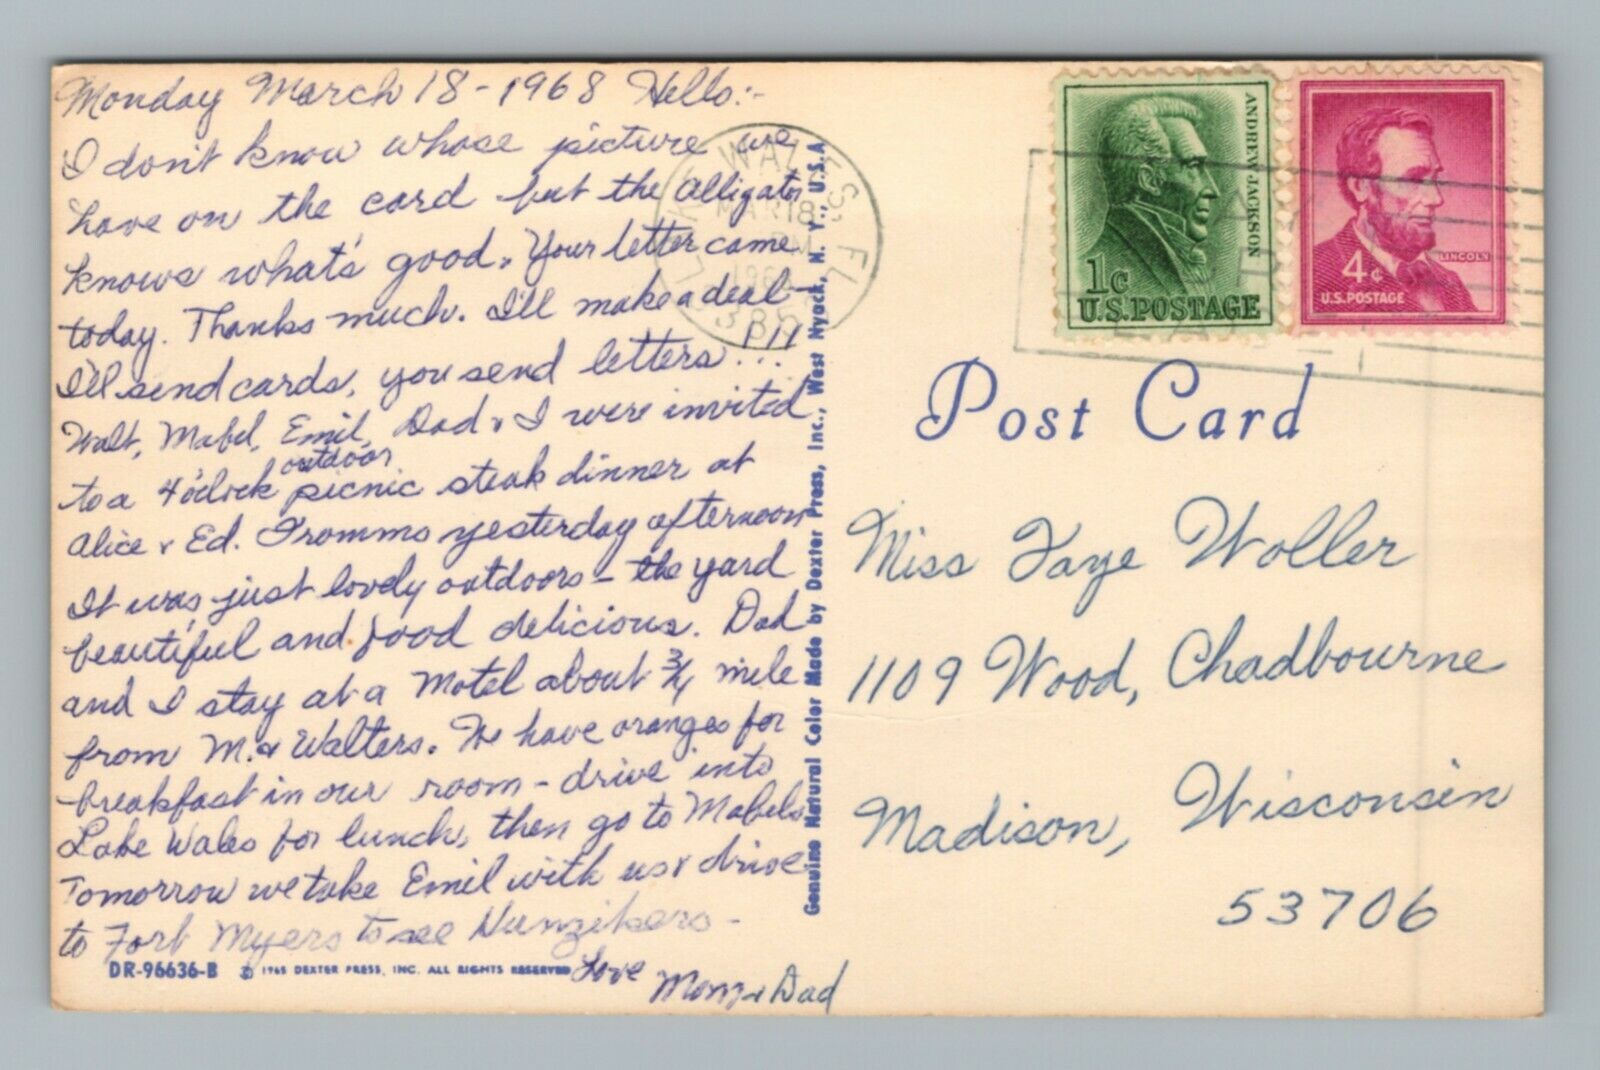 Monday March 18-1968 Hello:-
I don't know whose picture we
have on the card but the alligator
knows what's good. Your letter came
today. Thanks much. I'll make a deal -
I'll send cards, you send letters!!!
Walt, Mabel, Emil, Dad & I were invited
to a 4 o'clock outdoor picnic steak dinner at
Alice & Ed. Fromms yesterday afternoon
It was just lovely outdoors - the yard
beautiful and food delicious. Dad
and I stay at a Motel about 3/4 mile
from M. & Walters. We have oranges for
breakfast in our room - drive into
Lake Wales for lunch, then go to Mabels
Tomorrow we take Emil with us & drive
to Fort Myers to see Hunzikers -
Love
Mom & Dad
DR-96636-B © 1965 DEXTER PRESS, INC. ALL RIGHTS RESERVED
Genuine Natural Color Made by Dexter Press, Inc., West Nyack, N. Y., U.S.A
LAKE WALES, FL
MAR 18
PM
ANDREW JACKSON
1¢
U.S. POSTAGE
LINCOLN
4¢
U.S. POSTAGE
Post Card
Miss Faye Woller
1109 Wood, Chadbourne
Madison, Wisconsin
53706